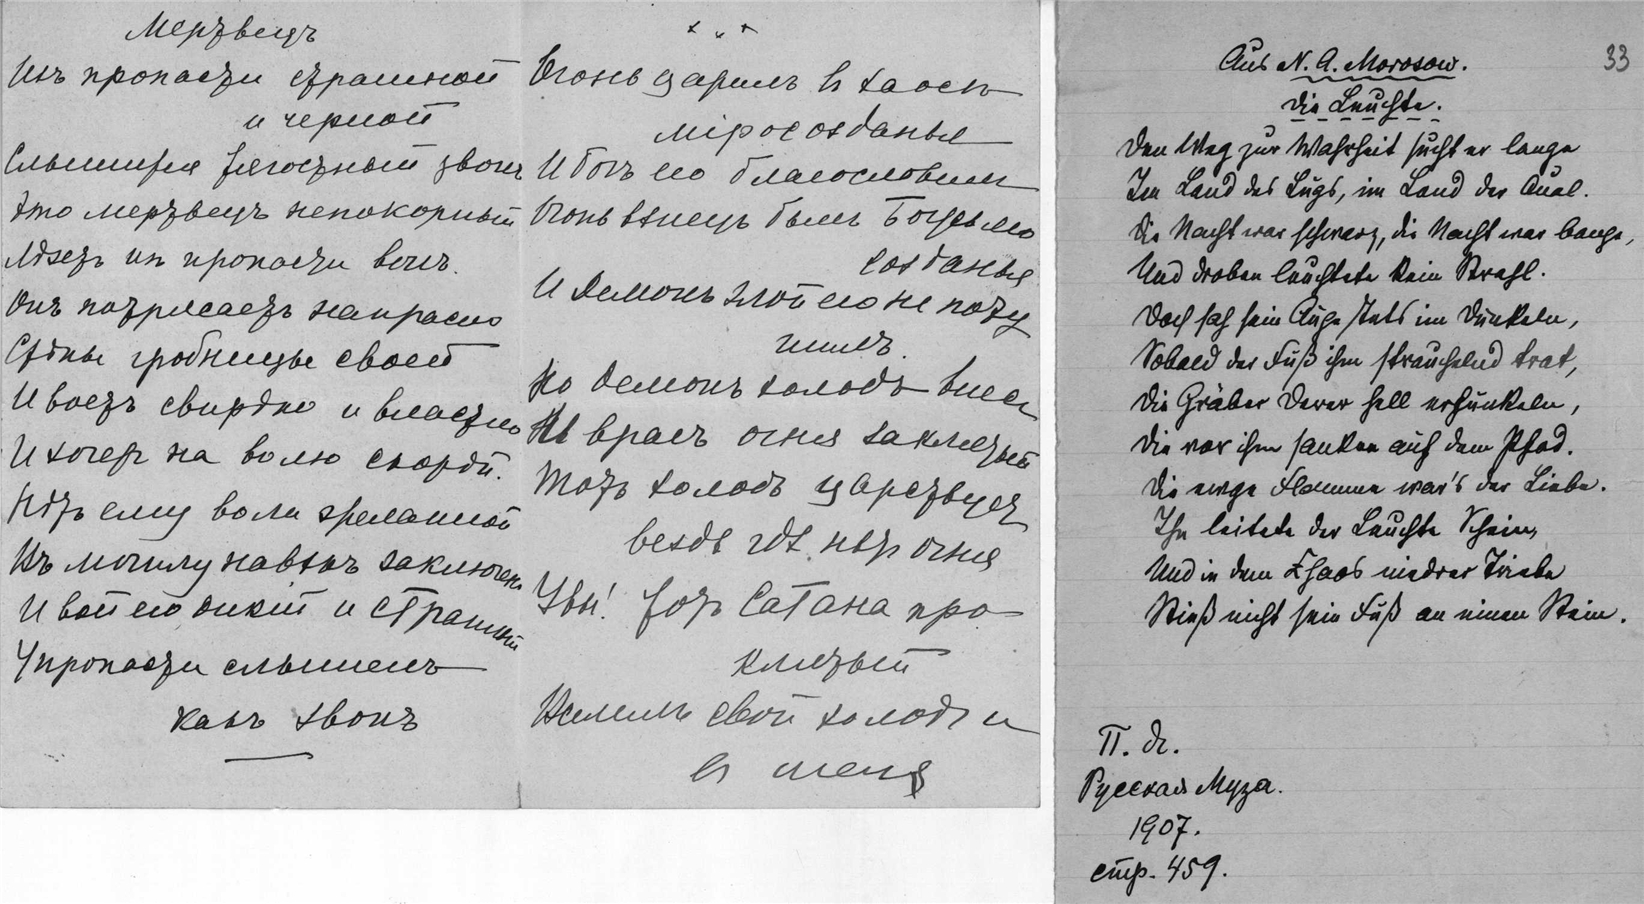 Мертвецъ
Изъ пропасти страшной
и черной
Слышится тягостный звонъ
Это мертвецъ непокорный
Лѣзетъ из пропасти вонъ.
Онъ потрясаетъ напрасно
Стѣны гробницы своей
И воетъ свирѣпо и властно
И хочетъ на волю скорѣй.
Нѣтъ ему воли желанной
Въ могилу навѣкъ заключенъ
И вой его дикій и страшный
Упропасти слышенъ
какъ звонъ
х х х
Огонь царилъ въ хаосѣ
міросозданья
И богъ его благословилъ
Огонь вѣнецъ былъ Божьяго
созданья
И Демонъ злой его не поту
шилъ.
Но демонъ холодъ внесъ
врагъ огня заклятый
Тотъ холодъ царствует
вездѣ гдѣ нѣт огня
Увы! тотъ Сатана про
клятый
Вселилъ свой холодъ и
въ меня
Aus N. A. Morosow.
33
Die Leuchte.
Den Weg zur Wahrheit sucht er lange
Im Land des Lugs, im Land der Qual.
Die Nacht war schwarz, die Nacht war bange,
Und droben leuchtete kein Strahl.
Doch sah sein Auge stets im Dunkeln,
Sobald der Fuß ihm strauchelnd trat,
Die Gräber derer hell erfunkeln,
Die vor ihm sanken auf dem Pfad.
Die ewge Flamme war's der Liebe.
Ihn leitete der Leuchte Schein,
Und in dem Chaos niedrer Triebe
Stieß nicht sein Fuß an einen Stein.
П. Я.
Русская Муза.
1907.
стр. 459.